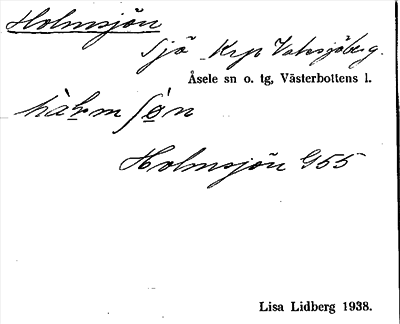 Holmsjön
Sjö Krp Vatsjöberg.
Åsele sn o. tg, Västerbottens l.
Holmsjön G55
Lisa Lidberg 1938.